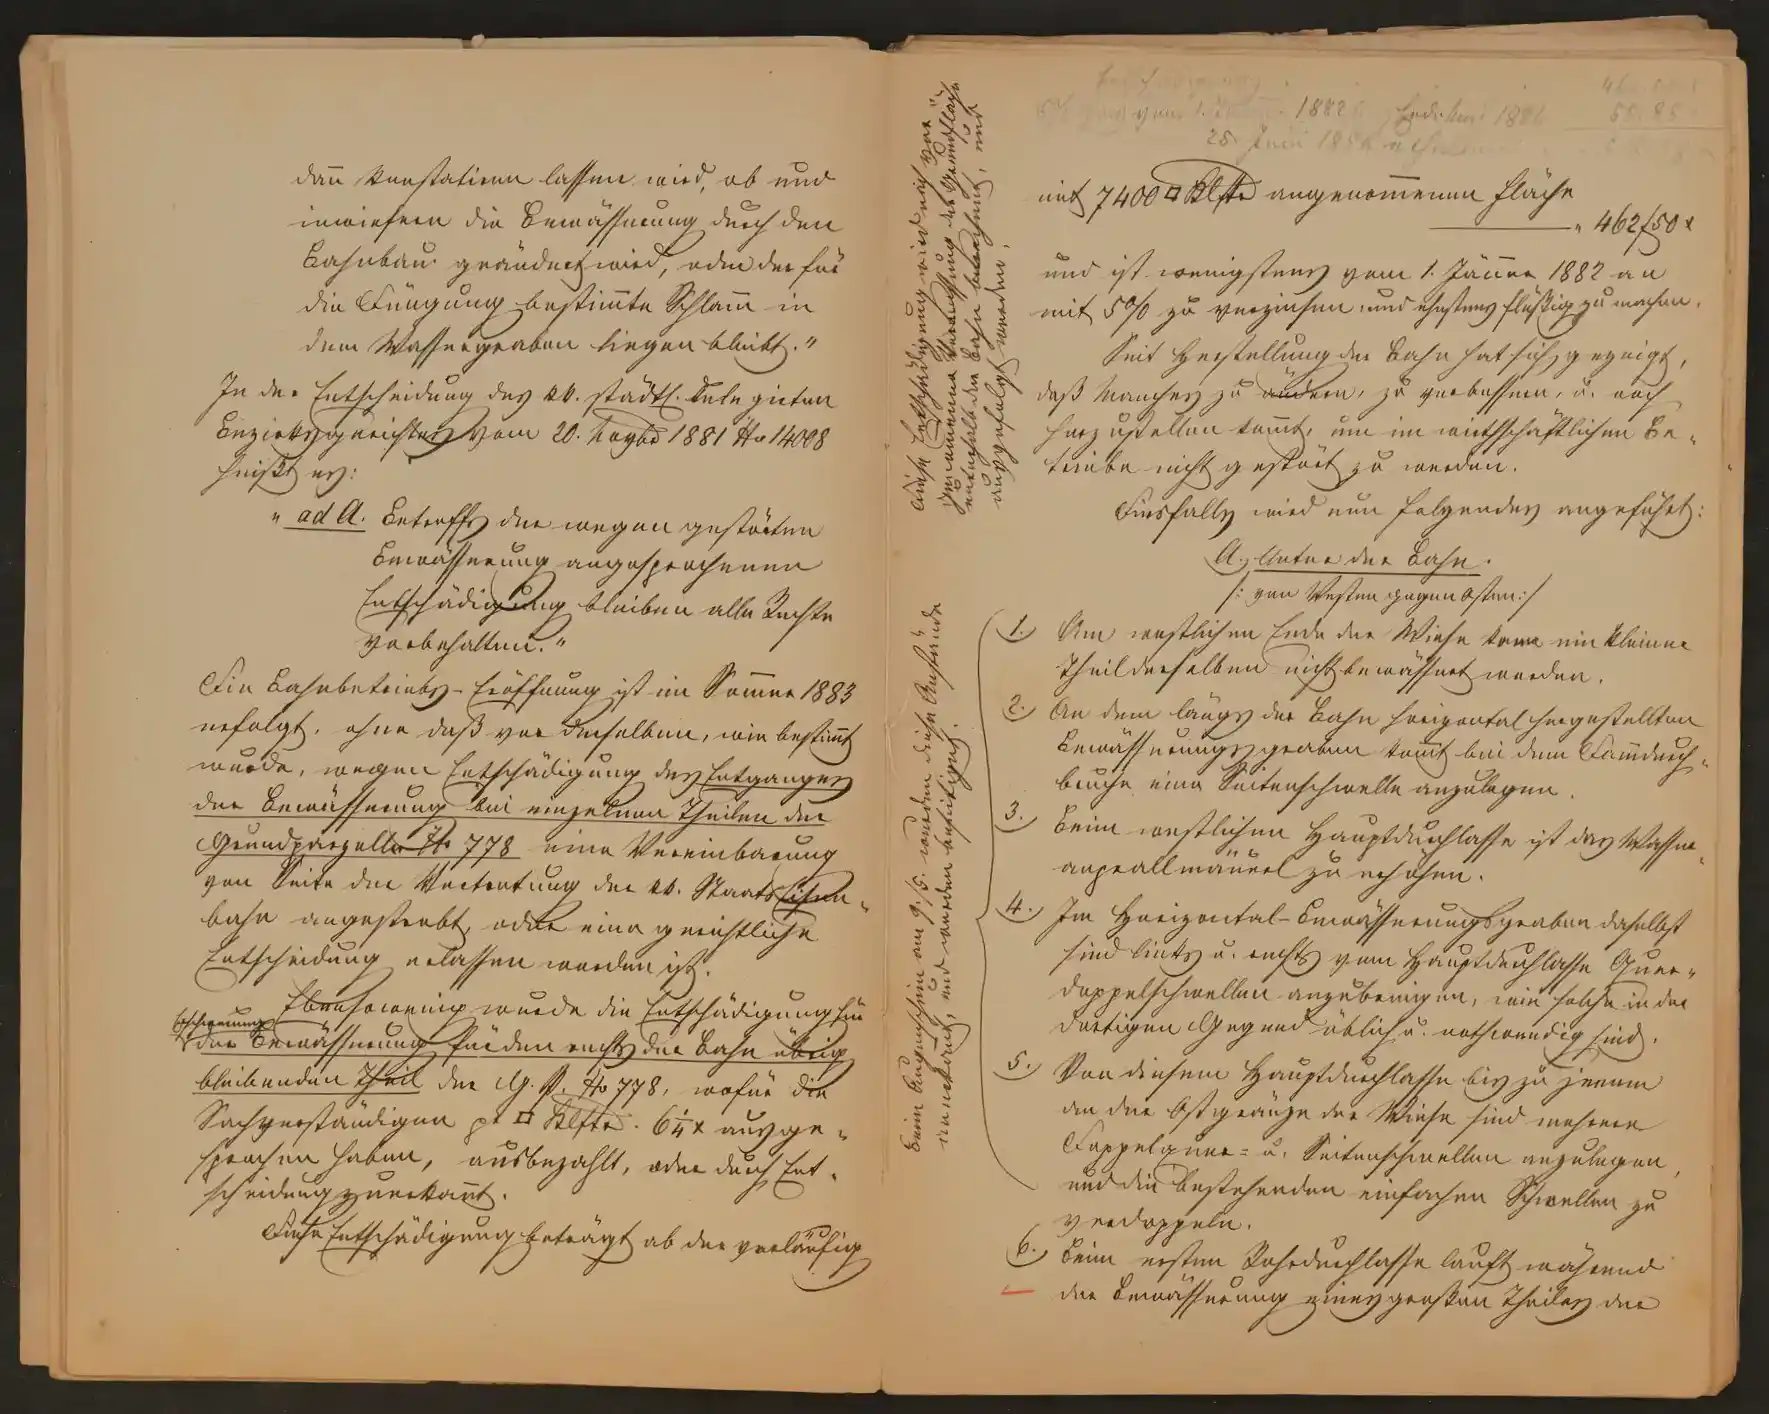 dann konstatiren lassen wird, ob und
inwiefern die Bewässerung durch den
Bahnbau geändert wird, oder der für
die Düngung bestimte Schlam in
dem Wassergraben liegen bleibt."
In der Entscheidung des kk. städtl. delegirten
Bezirksgerichtes vom 20. Novbr 1881 No 14008
heißt es:
" ad A. Betreffs der wegen gestörten
Bewässerung angesprochenen
Entschädigung bleiben alle Rechte
vorbehalten."
Die Bahnbetriebs-Eröffnung ist im Sommer 1883
erfolgt, ohne daß vor derselben, wie bestimt
wurde, wegen Entschädigung des Entganges
der Bewässerung bei einzelnen Theilen der
Grundparzelle No 778 eine Vereinbarung
von Seite der Vertretung der kk. Staatseisen-
bahn angestrebt, oder eine gerichtliche
Entscheidung erlassen worden ist.
Ebensowenig wurde die Entschädigung für
Erschwerung
der Bewässerung für den rechts der Bahn übrig
bleibenden Theil der G. P. No 778, wofür die
Sachverständigen pr □ Klftr. 6¼ x ausge-
sprochen haben, ausbezahlt, oder durch Ent-
scheidung zuerkannt.
Diese Entschädigung beträgt ab der vorläufig
Diese Entschädigung wird sich nach
genommener Vermessung der Grundfläche
unterhalb der Bahn berechnen, und
ausgefolgt werden.
Beim Augenschein am 9./5. wurden diese Umstände
und werden beseitigt.
vom 1. 1882 Ende Mai 1886
25. Juni 1886
mit 7400 □ Klftr angenommenen Fläche
" 462 f 50 x
und ist wenigstens vom 1. Jänner 1882 an
mit 5% zu verzinsen und ehestens flüßig zu machen.
Seit Herstellung der Bahn hat sich gezeigt,
daß Manches zu ändern, zu verbessern, u. noch
herzustellen komt, um im wirthschäftlichen Be-
triebe nicht gestört zu werden.
Diesfalls wird nun folgendes angeführt:
A. Unter der Bahn.
/: von Westen gegen Osten :/
1. Am westlichen Ende der Wiese kann ein kleiner
Theil derselben nicht bewässert werden.
2. An dem längs der Bahn horizontal hergestellten
Bewässerungsgraben komt bei dem Damdurch-
bruche eine Seitenschwelle anzulegen.
3. Beim westlichen Hauptdurchlasse ist das Wasser-
anprallmäuerl zu erhöhen.
4. Im Horizontal-Bewässerungsgraben daselbst
sind links u. rechts vom Hauptdurchlasse Quer-
doppelschwellen anzubringen, wie solche in der
dortigen Gegend üblich u. nothwendig sind.
5. Von diesem Hauptdurchlasse bis zu jenem
an der Ostgränze der Wiese sind mehrere
Doppelquer- u. Seitenschwellen anzulegen,
und die bestehenden einfachen Schwellen zu
verdoppeln.
6. Beim ersten Rohrdurchlasse lauft während
der Bewässerung eines großen Theiles der